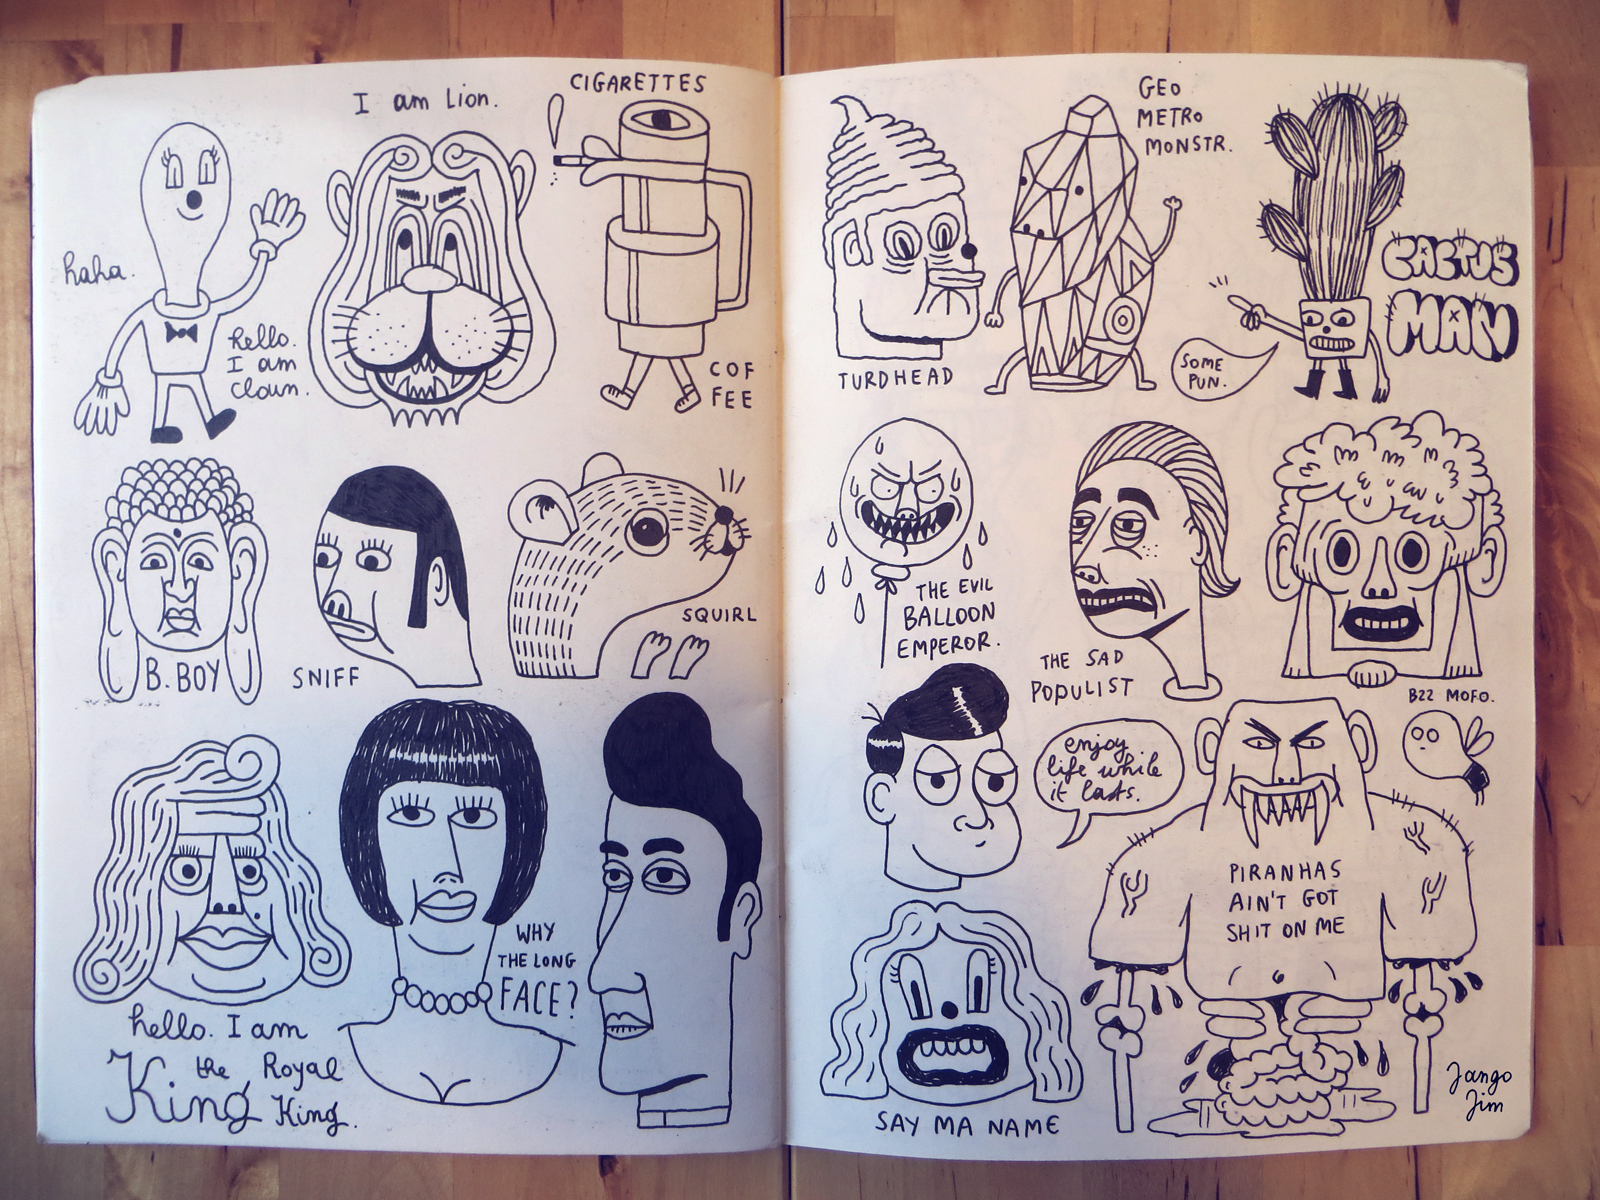 I am Lion.
CIGARETTES
haha.
hello.
I am
clown.
COF
FEE
B. BOY
SNIFF
SQUIRL
hello. I am
King the Royal
King.
WHY
THE LONG
FACE?
TURDHEAD
GEO
METRO
MONSTR.
SOME
PUN.
CACTUS
MAN
THE EVIL
BALLOON
EMPEROR.
THE SAD
POPULIST
B22 MOFO.
enjoy
life while
it lasts.
PIRANHAS
AIN'T GOT
SHIT ON ME
SAY MA NAME
Jango
Jim